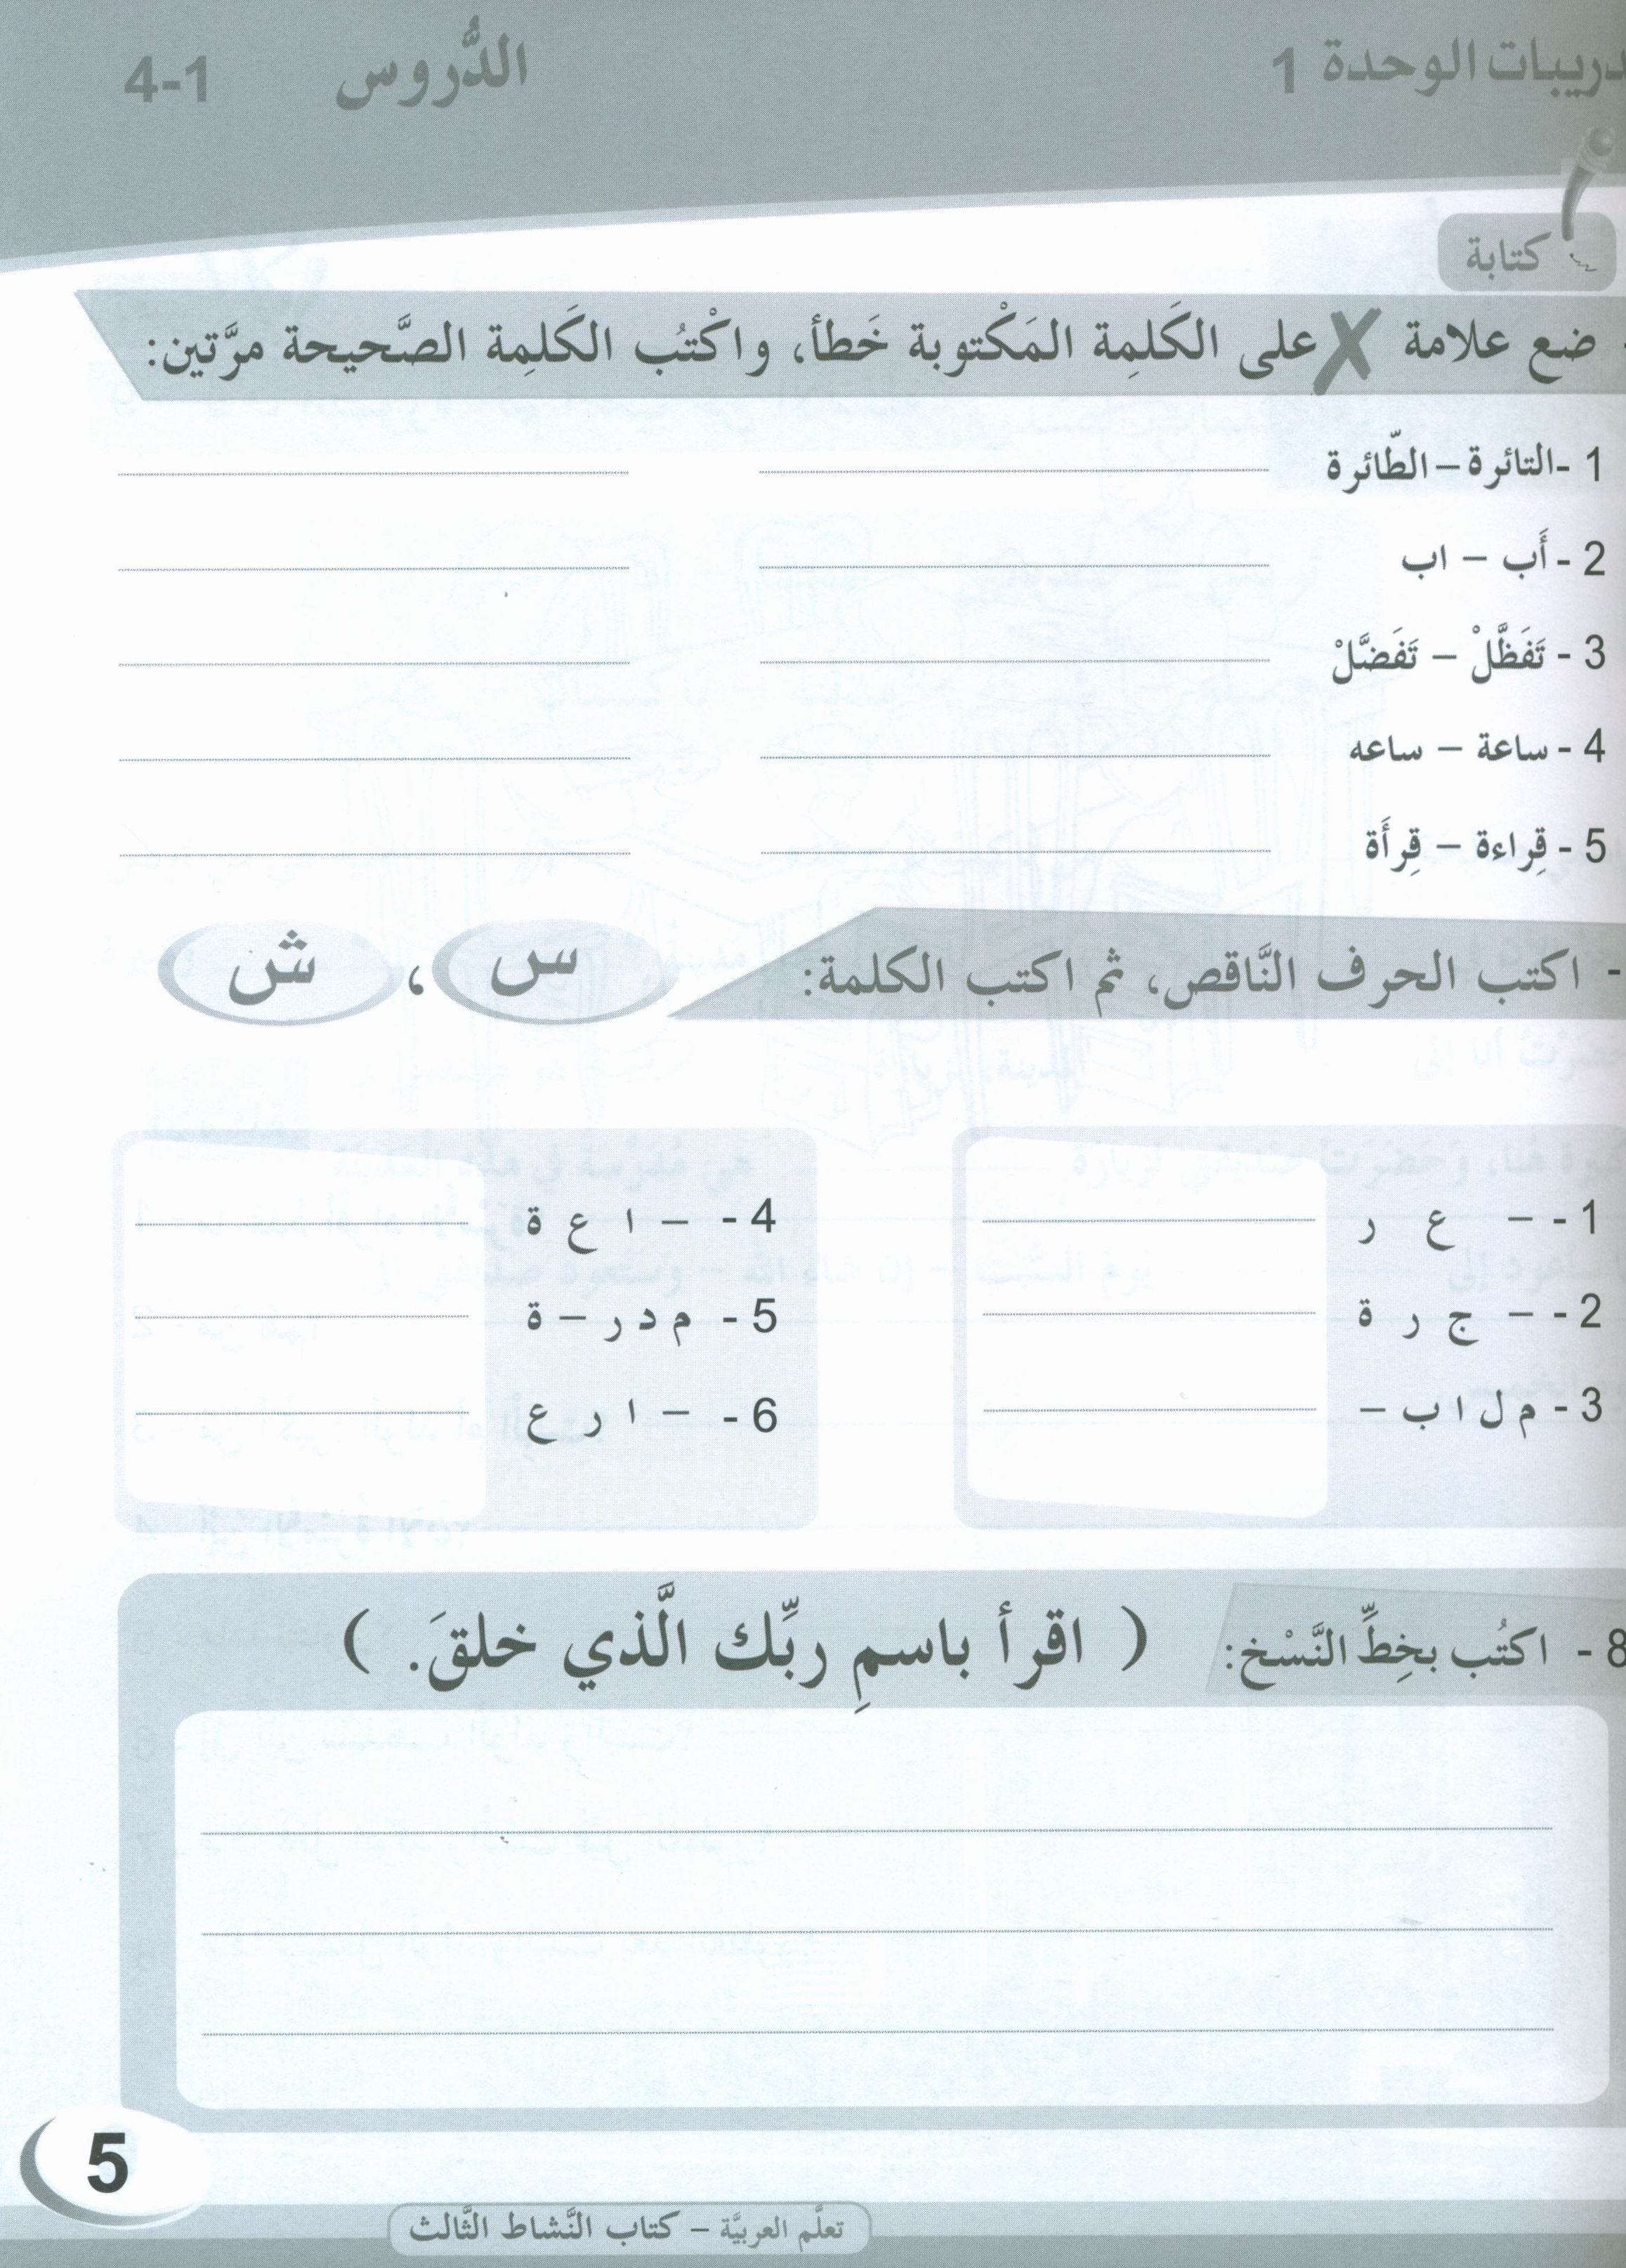 تدريبات الوحدة 1 الدُّروس 4-1
كتابة
- ضع علامة ✗ على الكَلِمة المَكْتوبة خَطأ، واكْتُب الكَلِمة الصَّحيحة مرَّتين:
1 -التائرة – الطّائرة
2 - أَب – اب
3 - تَفَظَّلْ – تَفَضَّلْ
4 - ساعة – ساعه
5 - قِراءة – قِرأَة
- اكتب الحرف النَّاقص، ثم اكتب الكلمة: س ، ش
1 - – ع ر
2 - – ج ر ة
3 - م ل ا ب –
4 - – ا ع ة
5 - م د ر – ة
6 - – ا ر ع
8 - اكتُب بخِطِّ النَّسْخ: ( اقرأ باسمِ ربِّك الَّذي خلقَ. )
5
تعلَّم العربيَّة – كتاب النَّشاط الثَّالث